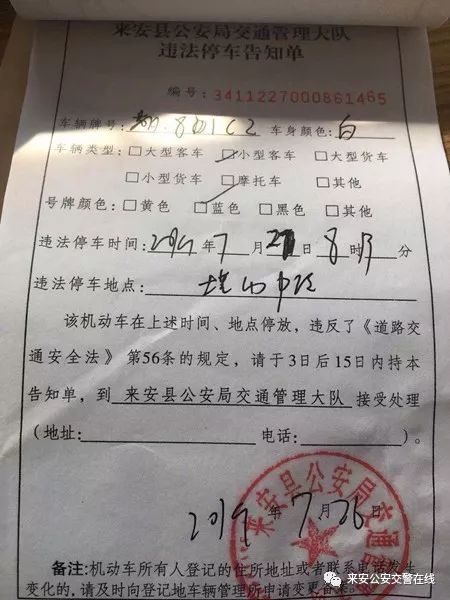 来安县公安局交通管理大队
违法停车告知单
编号：3411227000861465
车辆牌号：8D1C2 车身颜色：白
车辆类型：□大型客车 □小型客车 □大型货车
□小型货车 □摩托车 □其他
号牌颜色：□黄色 □蓝色 □黑色 □其他
违法停车时间：2019年7月日8时分
违法停车地点：
该机动车在上述时间、地点停放，违反了《道路交
通安全法》第56条的规定，请于3日后15日内持本
告知单，到 来安县公安局交通管理大队 接受处理
（地址： 电话： ）。
来安县公安局交通
2019年7月26日
备注：机动车所有人登记的住所地址或者联系电话发生
变化的，请及时向登记地车辆管理所申请变更备案。
来安公安交警在线